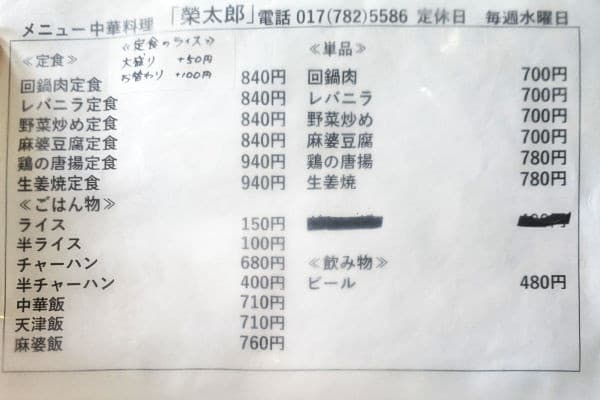 メニュー 中華料理 「榮太郎」 電話 017(782)5586 定休日 毎週水曜日
≪定食のライス≫
大盛り +50円
お替わり +100円
≪定食≫
回鍋肉定食 840円
レバニラ定食 840円
野菜炒め定食 840円
麻婆豆腐定食 840円
鶏の唐揚定食 940円
生姜焼定食 940円
≪ごはん物≫
ライス 150円
半ライス 100円
チャーハン 680円
半チャーハン 400円
中華飯 710円
天津飯 710円
麻婆飯 760円
≪単品≫
回鍋肉 700円
レバニラ 700円
野菜炒め 700円
麻婆豆腐 700円
鶏の唐揚 780円
生姜焼 780円
≪飲み物≫
ビール 480円